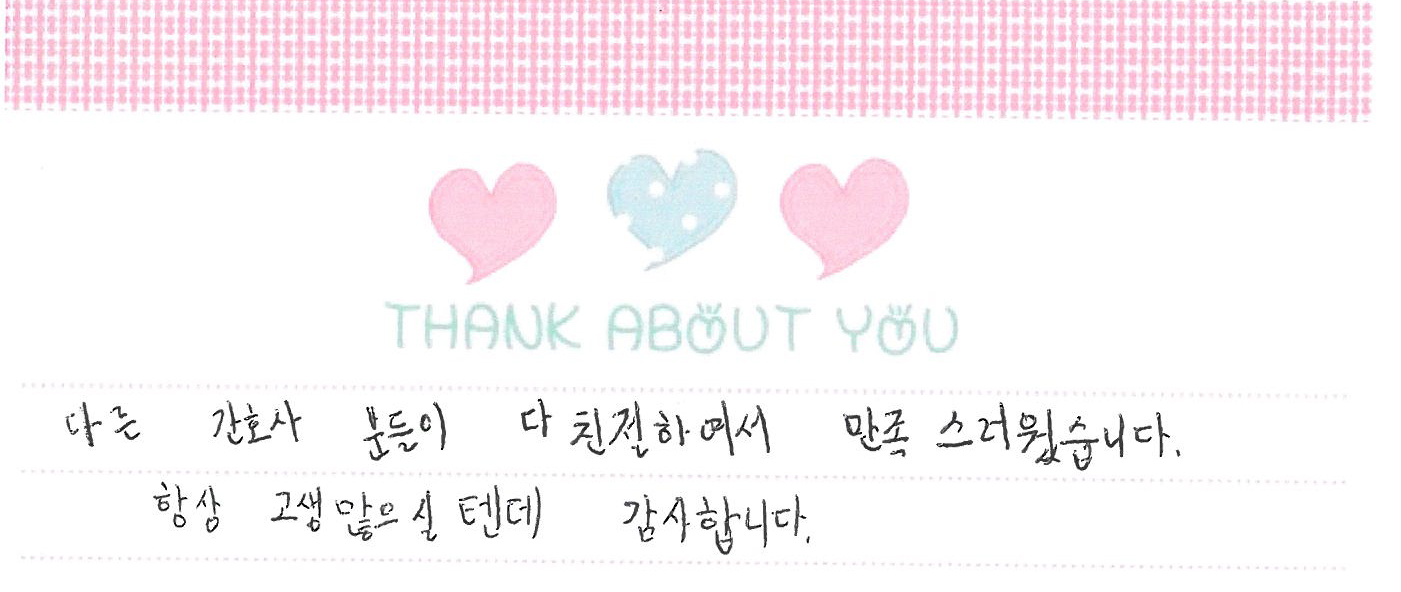 THANK ABOUT YOU
다른 간호사 분들이 다 친절하여서 만족스러웠습니다.
항상 고생 많으실텐데 감사합니다.